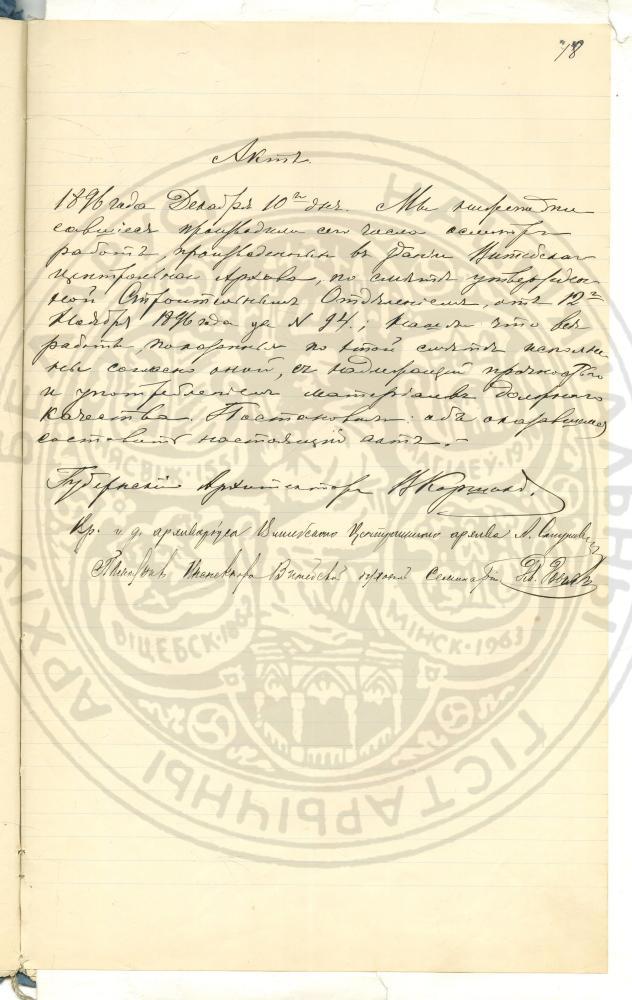 78
Актъ
1896 года Декабря 10го дня. Мы нижеподпи
савшіеся производили сего числа осмотръ
работъ, произведенныхъ въ зданіи Витебскаго
Центральнаго Архива, по смѣтѣ утвержден-
ной Строительнымъ Отдѣленіемъ, отъ 12го
Ноября 1896 года за N 94, нашли что всѣ
работы показанныя по этой смѣтѣ исполне-
ны согласно оной, съ надлежащей прочностью
и употребленіемъ матеріаловъ должнаго
качества. Постановили: объ оказавшемся
составить настоящій актъ.-
Губернскій Архитекторъ В Коршиковъ
И. д. архиваріуса Витебскаго Центральнаго архива
Инспектора Витебской духовной Семинаріи
ВІЦЕБСК·1862
МІНСК·1963
ГІСТАРЫЧНЫ
АРХІ